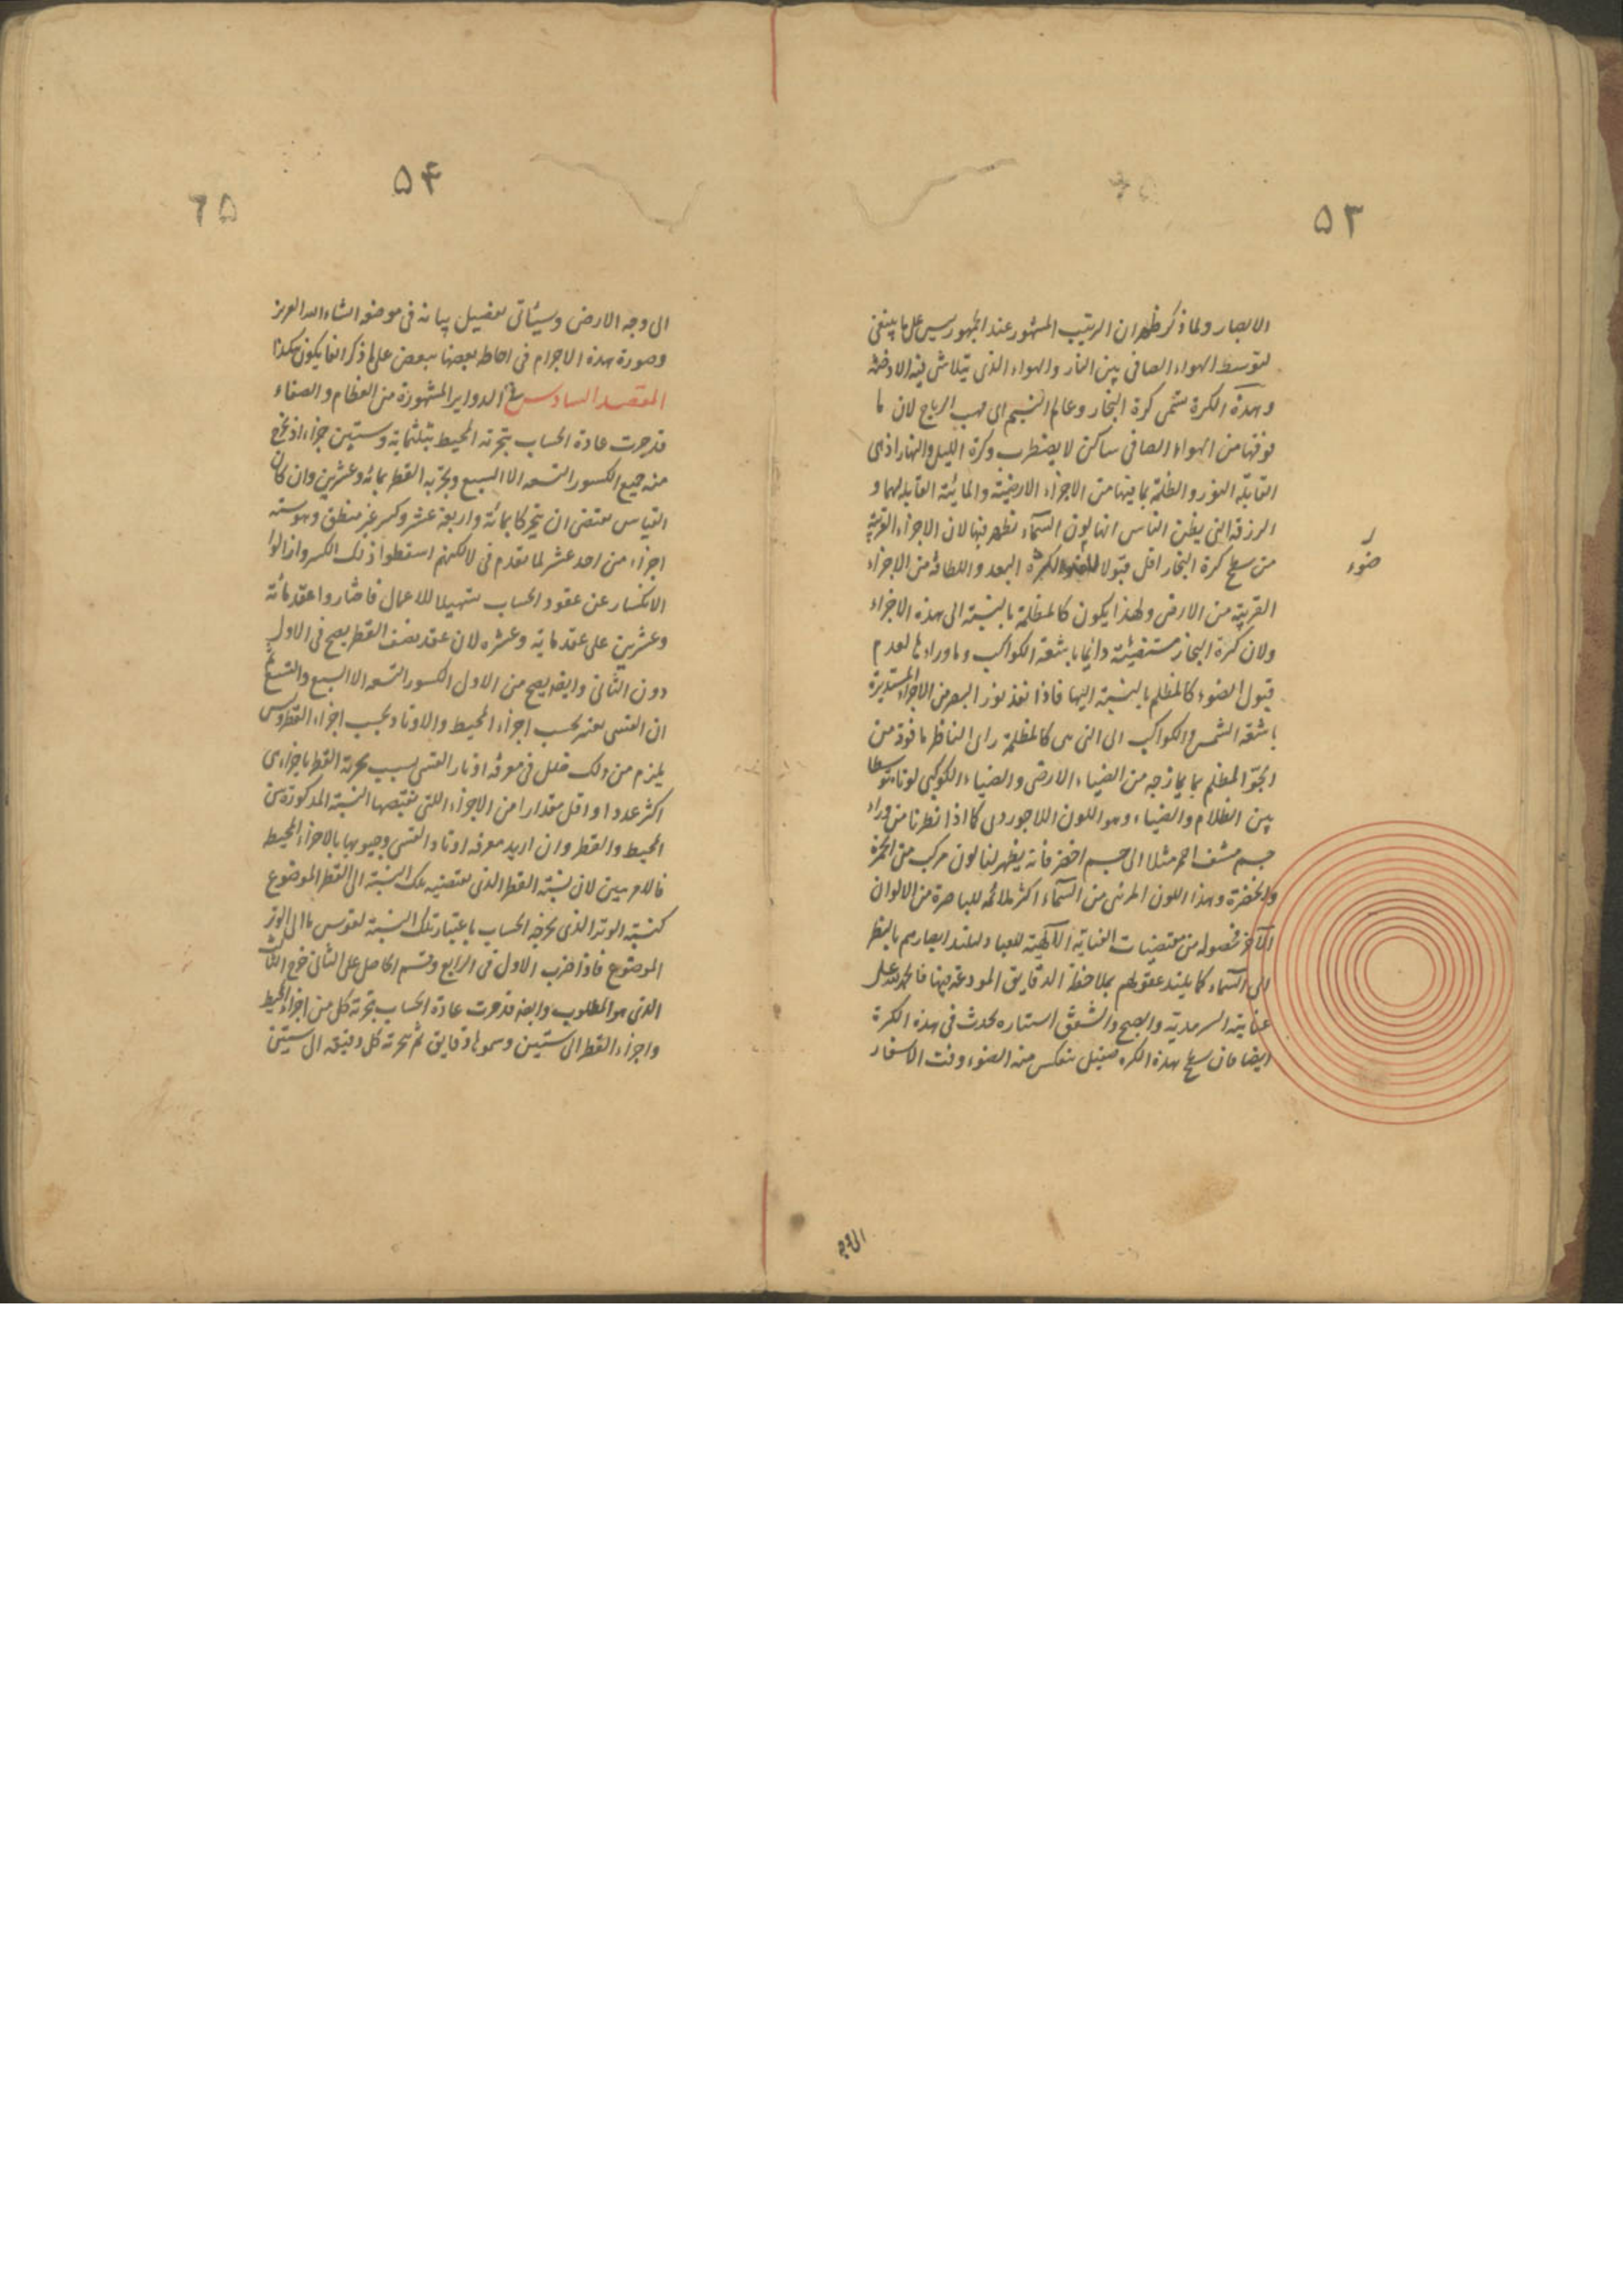 ٥٣
الابصار ولما ذكر ظهر ان الترتيب المشهور عند الجمهور ليس على ما ينبغى
لتوسط الهواء الصافى بين النار والهواء الذى يتلاشى فيه الادخنة
وهذه الكرة تسمى كرة البخار وعالم النسيم اى مهب الرياح لان ما
فوقها من الهواء الصافى ساكن لا يضطرب وكرة الليل والنهار اذ هى
القابلة للنور والظلمة بما فيها من الاجزاء الارضية والمائية القابلة لهما و
الزرقة التى يظن الناس انها لون السماء تظهر فيها لان الاجزاء القريبة
من سطح كرة البخار اقل قبولا للضوء لكثرة البعد واللطافة من الاجزاء
ضوء
القريبة من الارض ولهذا يكون كالمظلمة بالنسبة الى هذه الاجزاء
ولان كرة البخار مستضيئة دائما باشعة الكواكب وما وراءها لعدم
قبول الضوء كالمظلم بالنسبة اليها فاذا نفذ نور البصر من الاجزاء المستنيرة
باشعة الشمس والكواكب الى التى هى كالمظلمة راى الناظر ما فوقه من
الجو المظلم بما يمازجه من الضياء الارضى والضياء الكوكبى لونا متوسطا
بين الظلام والضياء وهو اللون اللاجوردى كما اذا نظرنا من وراء
جسم مشف احمر مثلا الى جسم اخضر فانه يظهر لنا لون مركب من الحمرة
والخضرة وهذا اللون المرئى من السماء اكثر ملائمة للباصرة من الالوان
الاخر فحصوله من مقتضيات العناية الالهية للعباد ليلتذ ابصارهم بالنظر
الى السماء كما يلتذ عقولهم بملاحظة الدقايق المودعة فيها فالحمد لله على
عنايته السرمدية والصبح والشفق استناره يحدث فى هذه الكرة
ايضا فان سطح هذه الكره صقيل ينعكس منه الضوء وقت الاسفار
الى وجه
٥۴
٦٥
الى وجه الارض وسيأتى تفصيل بيانه فى موضعه انشاء الله العزيز
وصورة هذه الاجرام فى احاطة بعضها ببعض على ما ذكر انفا يكون هكذا
المقصد السادس فى الدواير المشهورة من العظام والصغار
قد جرت عادة الحساب بتجزئة المحيط بثلثماية وستين جزءا اذ يخرج
منه جميع الكسور التسعة الا السبع وتجزية القطر بمائة وعشرين وان كان
القياس يقتضى ان يتجزء كا بمائة واربعة عشر وكسر غير منطق وهو ستة
اجزاء من احد عشر لما تقدم فى لا لكنهم اسقطوا ذلك الكسر وازالوا
الانكسار عن عقود الحساب تسهيلا للاعمال فاختاروا عقد مائة
وعشرين على عقد ماية وعشره لان عقد نصف القطر يصح فى الاول
دون الثانى وايضا يصح من الاول الكسور التسعة الا السبع والتسع ثم
ان القسى يعتبر بحسب اجزاء المحيط والاوتار بحسب اجزاء القطر وليس
يلزم من ذلك خلل فى معرفة اوتار القسى بسبب تجزئة القطر باجزاء هى
اكثر عددا واقل مقدارا من الاجزاء اللتى تقتضيها النسبة المذكورة بين
المحيط والقطر وان اريد معرفة اوتار القسى وجيوبها بالاجزاء المحيط
فالامر بين لان نسبة القطر الذى يقتضيه تلك النسبة الى القطر الموضوع
كنسبة الوتر الذى يخرجه الحساب باعتبار تلك النسبة لقوس ما الى الوتر
الموضوع فاذا ضرب الاول فى الرابع وقسم الحاصل على الثانى خرج الثالث
الذى هو المطلوب وايضا قد جرت عادة الحساب بتجزئة كل من اجزاء المحيط
واجزاء القطر الى ستين وسموها دقايق ثم تجزئة كل دقيقه الى ستين